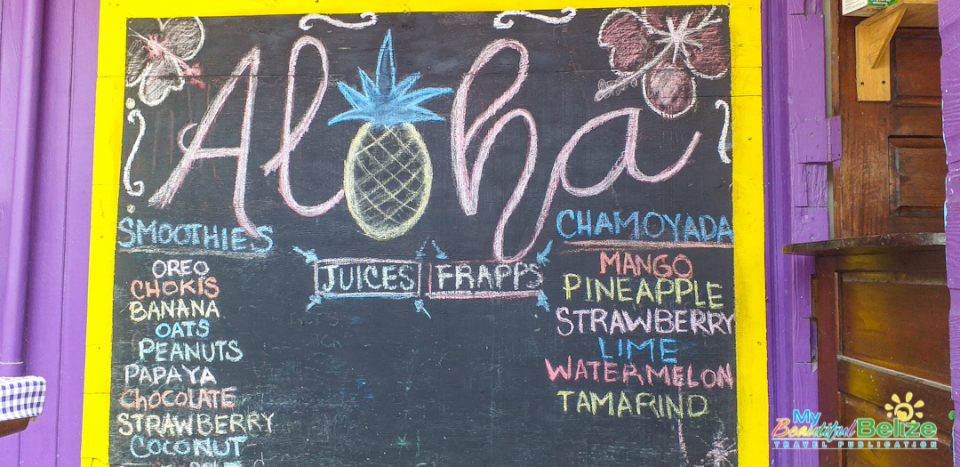 Aloha
SMOOTHIES
OREO
CHOKIS
BANANA
OATS
PEANUTS
PAPAYA
CHOCOLATE
STRAWBERRY
COCONUT
JUICES FRAPPS
CHAMOYADA
MANGO
PINEAPPLE
STRAWBERRY
LIME
WATERMELON
TAMARIND
My
Beautiful Belize
TRAVEL PUBLICATION